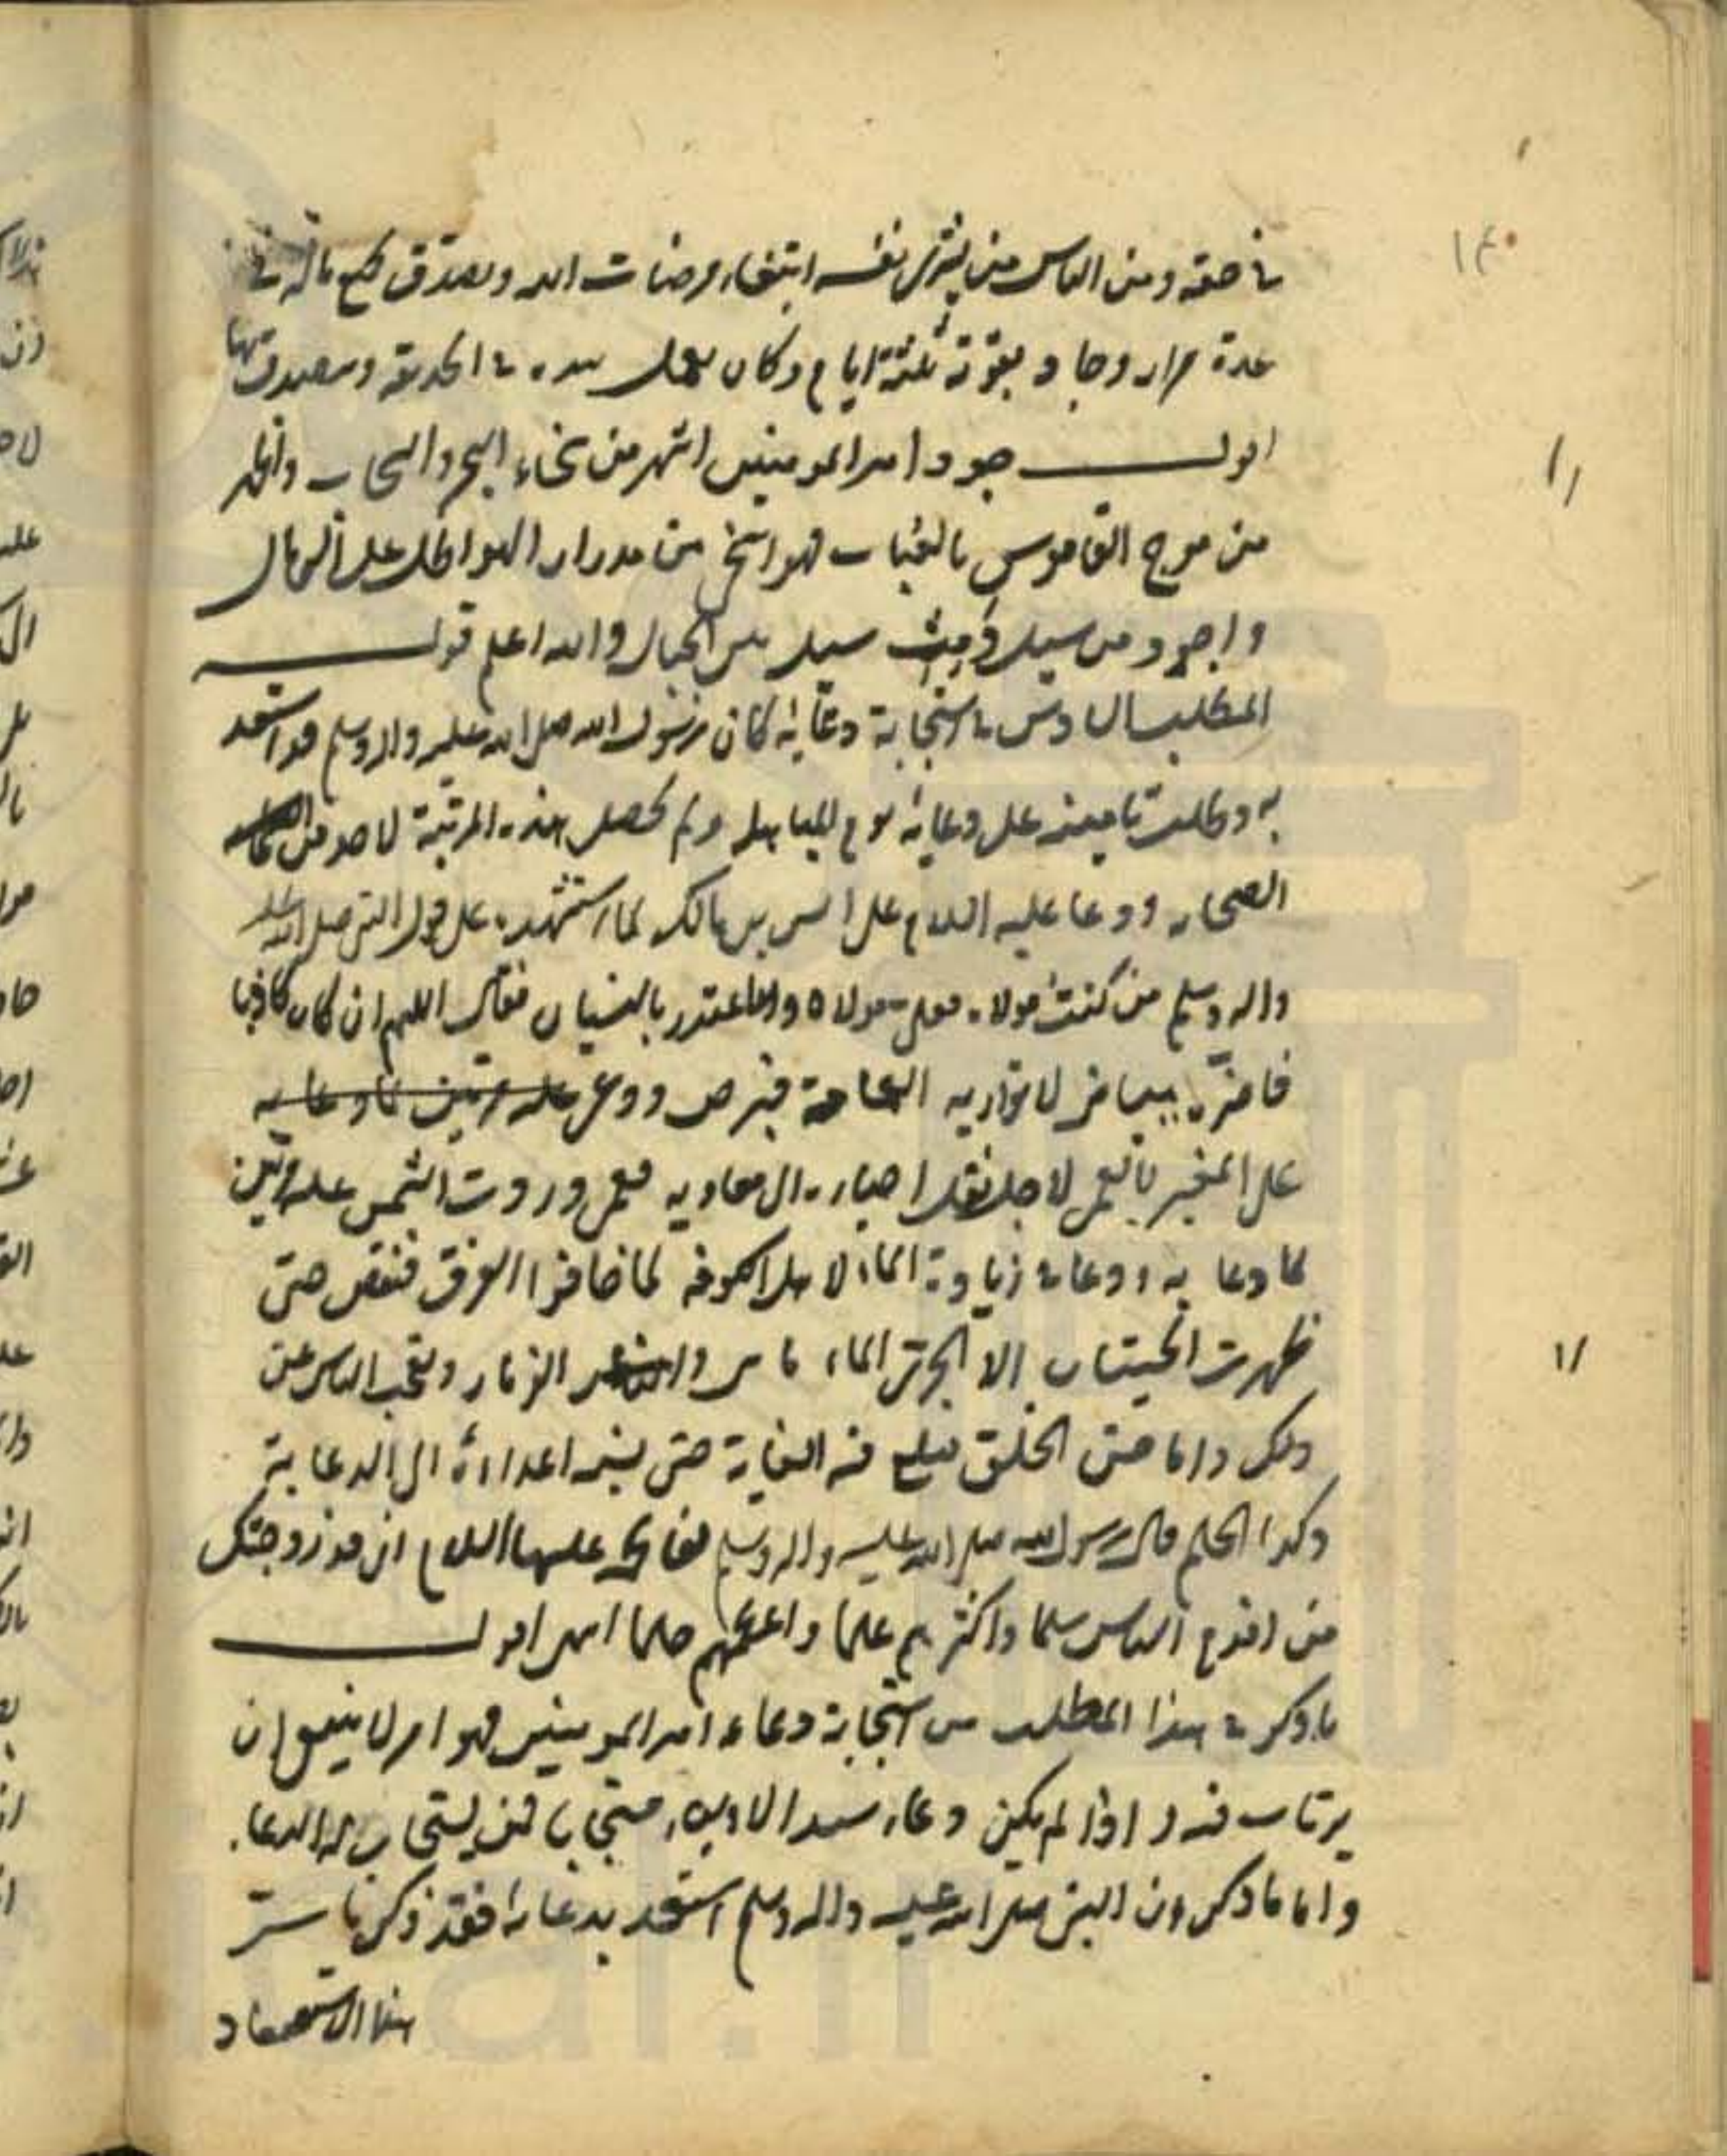 ١٤٠
في حقه ومن الناس من يشري نفسه ابتغاء مرضات الله وتصدق بجميع ماله في
عدة مرار وجاد بقوته ثلثة ايام وكان يعمل بيده في الحديقة ويتصدق بها
اقول جود امير المومنين اشهر من سخاء البحر والسحاب واظهر
من موج القاموس بالعباب فهو اسخى من مدرار الهواطل على الرمال
واجود من سيل سيل من الجبال والله اعلم قوله
المطلب السادس في استجابة دعائه كان رسول الله صلى الله عليه واله وسلم قد استسعد
به وطلب تامينه على دعائه يوم المباهلة ولم تحصل هذه المرتبة لاحد من
الصحابه ودعا عليه السلام على انس بن مالك لما استشهده على قول النبي صلى الله عليه
واله وسلم من كنت مولاه فعلي مولاه واعتذر بالنسيان فقال اللهم ان كان كاذبا
فاضربه ببياض لا تواريه العمامة فبرص ودعى
على المخبر بالعمى لاجل نقل اخباره الى معاويه فعمى وردت الشمس عليه مرتين
لما دعا به ودعا في زيادة الماء لاهل الكوفه لما خافوا الغرق فنقص حتى
ظهرت الحيتان الا الجري المار ماهي والزمار وتعجب الناس من
ذلك واما حسن الخلق فبلغ فيه الغاية حتى نسبه اعداؤه الى الدعابة
وكذا الحلم قال رسول الله صلى الله عليه واله وسلم لفاطمة عليها السلام اني قد زوجتك
من اقدم الناس سلما واكثرهم علما واعظمهم حلما انتهى اقول
ما ذكر في هذا المطلب من استجابة دعاء امير المومنين فهو امر لا ينبغي ان
يرتاب فيه واذا لم يكن دعاء سيد الاولياء مستجابا فمن يستجاب له الدعاء
واما ما ذكر ان النبي صلى الله عليه واله وسلم استسعد بدعائه فقد ذكرنا سر
هذا الاستسعاد